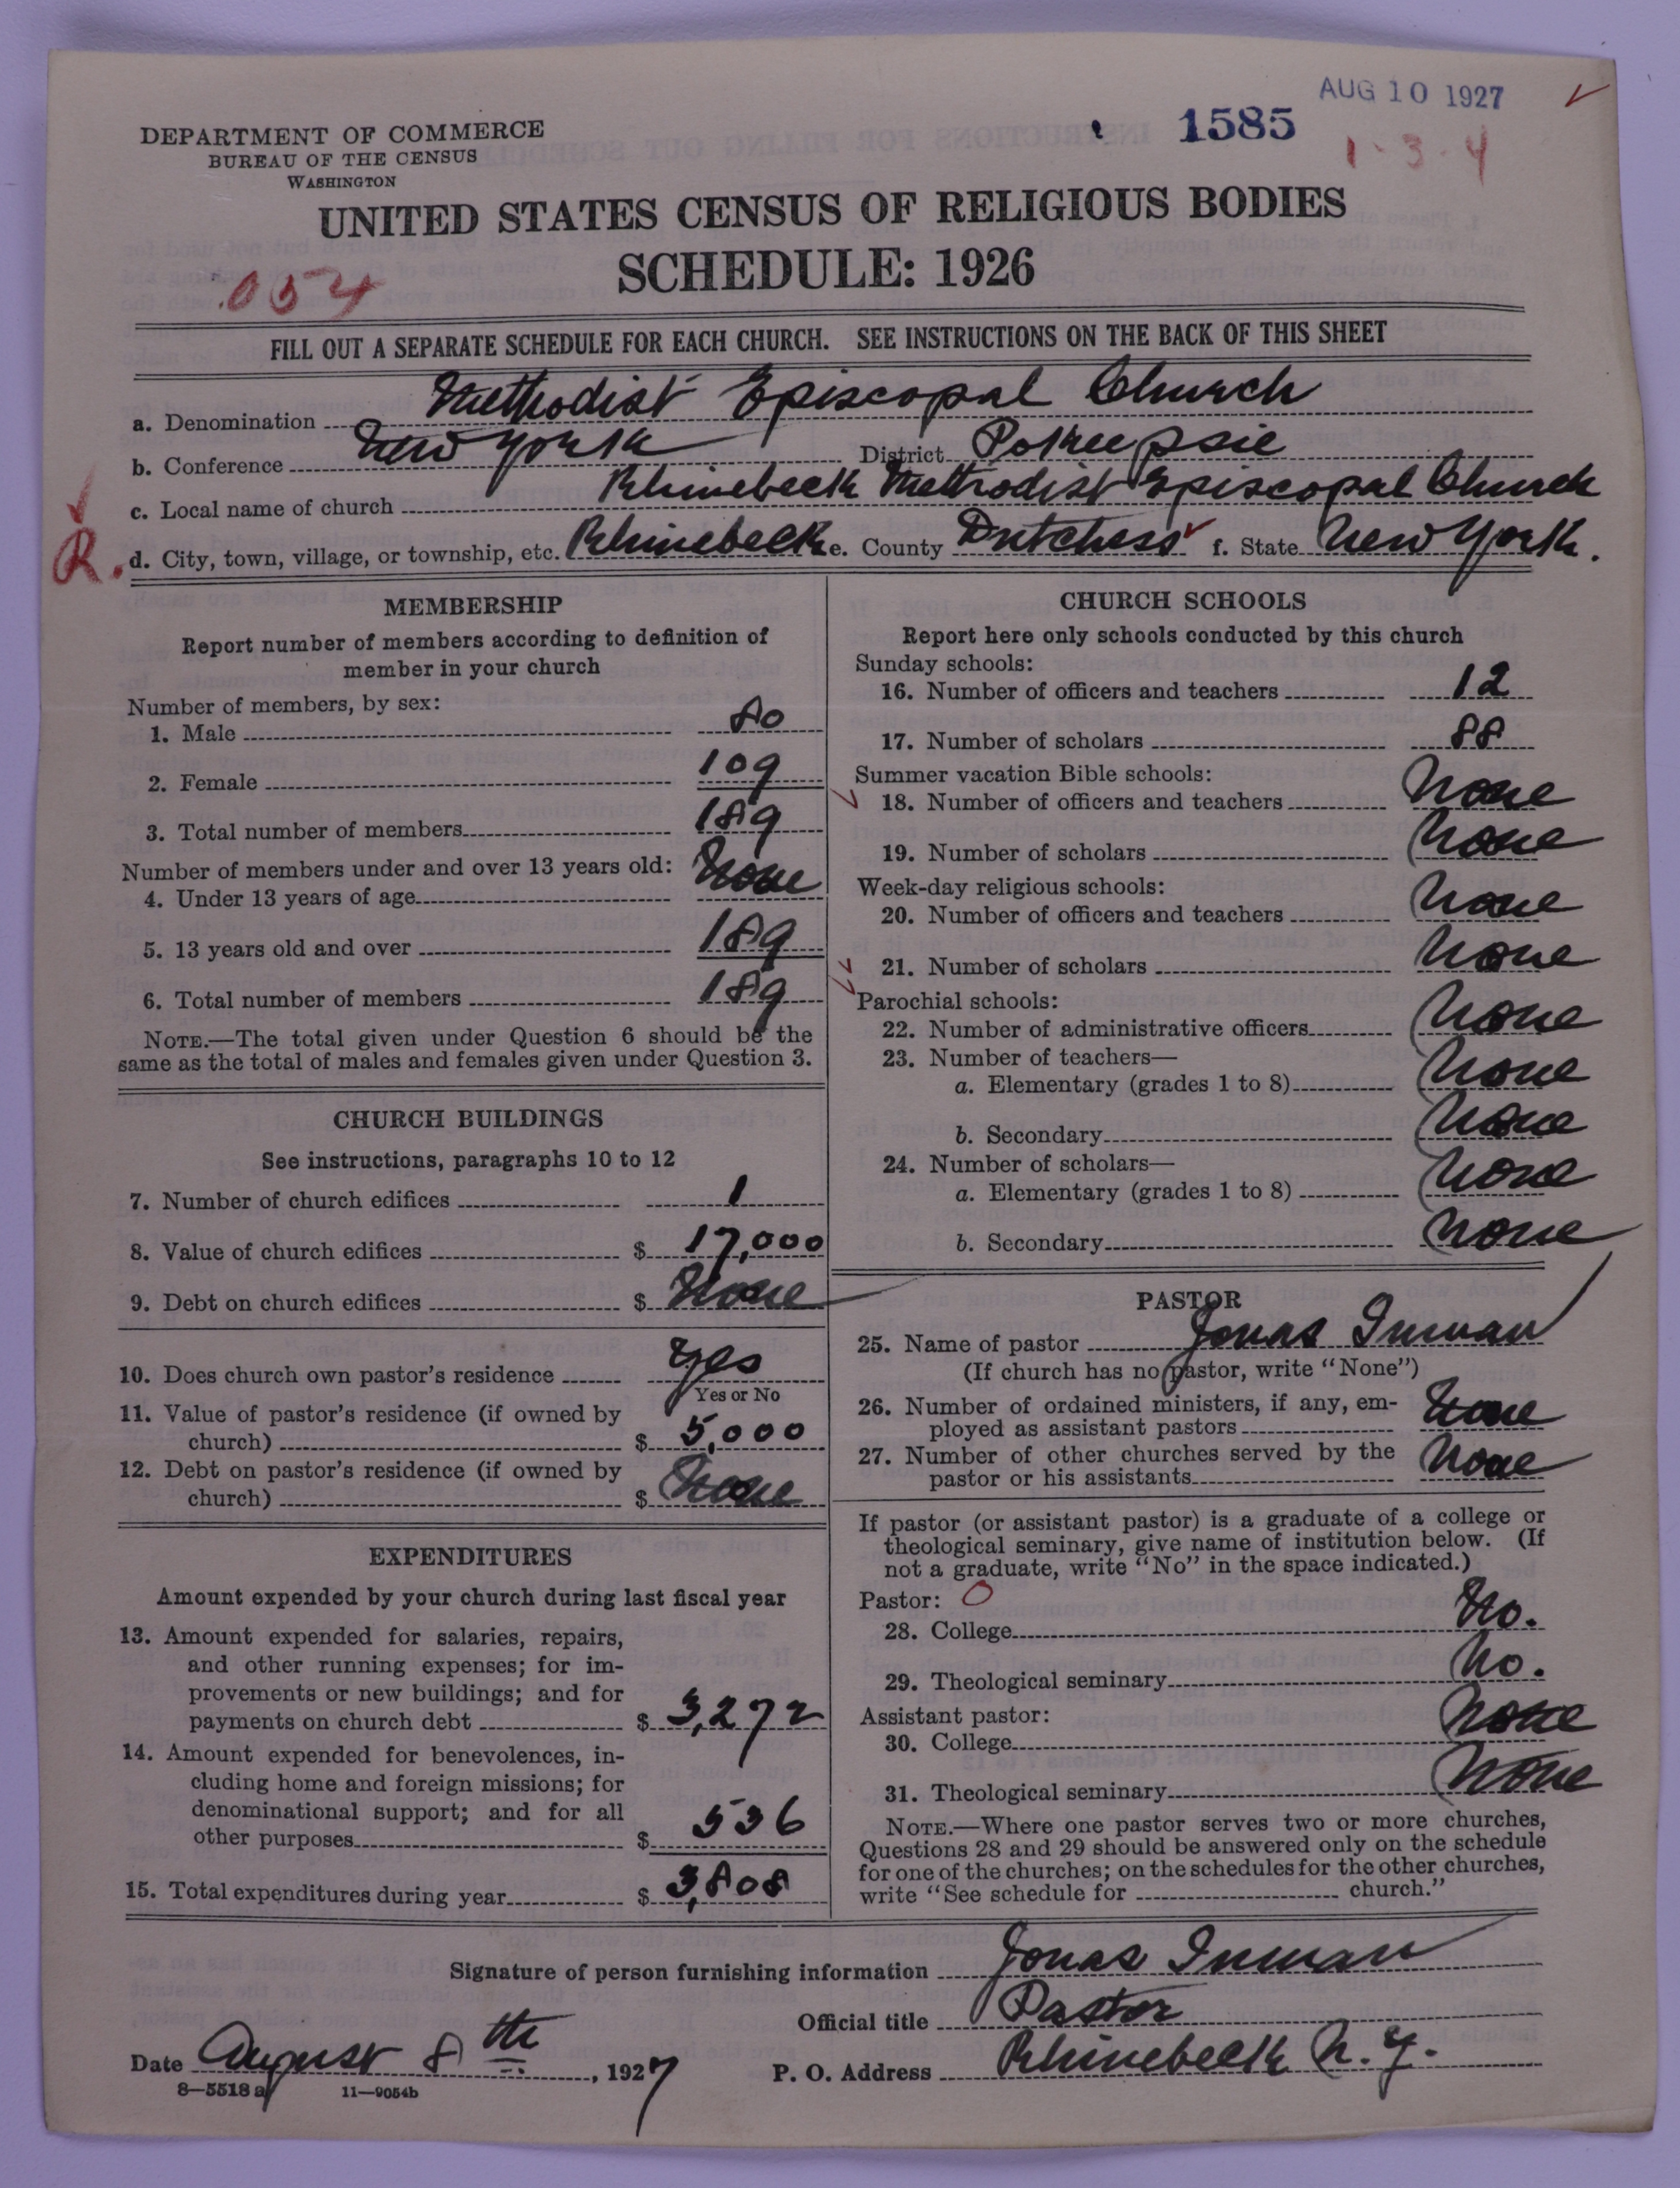 AUG 10 1927
1585
1-3-4
DEPARTMENT OF COMMERCE
BUREAU OF THE CENSUS
WASHINGTON
UNITED STATES CENSUS OF RELIGIOUS BODIES
SCHEDULE: 1926
.054
FILL OUT A SEPARATE SCHEDULE FOR EACH CHURCH. SEE INSTRUCTIONS ON THE BACK OF THIS SHEET
a. Denomination Methodist Episcopal Church
b. Conference New York District Pokeepsie
c. Local name of church Rhinebeck Methodist Episcopal Church
R. d. City, town, village, or township, etc. Rhinebeck e. County Dutchess f. State New York.
MEMBERSHIP
Report number of members according to definition of
member in your church
Number of members, by sex:
1. Male 80
2. Female 109
3. Total number of members 189
Number of members under and over 13 years old:
4. Under 13 years of age None
5. 13 years old and over 189
6. Total number of members 189
NOTE.—The total given under Question 6 should be the
same as the total of males and females given under Question 3.
CHURCH BUILDINGS
See instructions, paragraphs 10 to 12
7. Number of church edifices 1
8. Value of church edifices $ 17,000
9. Debt on church edifices $ None
10. Does church own pastor's residence Yes
Yes or No
11. Value of pastor's residence (if owned by
church) $ 5,000
12. Debt on pastor's residence (if owned by
church) $ None
EXPENDITURES
Amount expended by your church during last fiscal year
13. Amount expended for salaries, repairs,
and other running expenses; for im-
provements or new buildings; and for
payments on church debt $ 3,272
14. Amount expended for benevolences, in-
cluding home and foreign missions; for
denominational support; and for all
other purposes $ 536
15. Total expenditures during year $ 3,808
CHURCH SCHOOLS
Report here only schools conducted by this church
Sunday schools:
16. Number of officers and teachers 12
17. Number of scholars 88
Summer vacation Bible schools:
18. Number of officers and teachers None
19. Number of scholars None
Week-day religious schools:
20. Number of officers and teachers None
21. Number of scholars None
Parochial schools:
22. Number of administrative officers None
23. Number of teachers—
a. Elementary (grades 1 to 8) None
b. Secondary None
24. Number of scholars—
a. Elementary (grades 1 to 8) None
b. Secondary None
PASTOR
25. Name of pastor Jonas Inman
(If church has no pastor, write "None")
26. Number of ordained ministers, if any, em-
ployed as assistant pastors None
27. Number of other churches served by the
pastor or his assistants None
If pastor (or assistant pastor) is a graduate of a college or
theological seminary, give name of institution below. (If
not a graduate, write "No" in the space indicated.)
Pastor: O
28. College No.
29. Theological seminary No.
Assistant pastor:
30. College None
31. Theological seminary None
NOTE.—Where one pastor serves two or more churches,
Questions 28 and 29 should be answered only on the schedule
for one of the churches; on the schedules for the other churches,
write "See schedule for church."
Signature of person furnishing information Jonas Inman
Official title Pastor
Date August 8th, 1927 P. O. Address Rhinebeck N. Y.
8—5518a 11—9054b